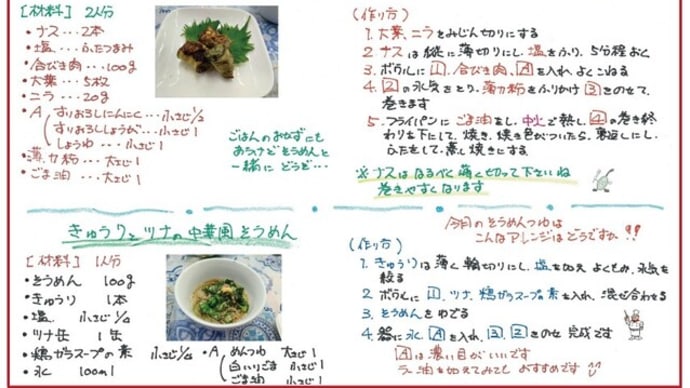 [材料] 2人分
・ナス…2本
・塩…ふたつまみ
・合びき肉…100g
・大葉…5枚
・ニラ…20g
・A すりおろしにんにく…小さじ1/2
すりおろししょうが…小さじ1
しょうゆ…小さじ1
・薄力粉…大さじ1
・ごま油…大さじ1
ごはんのおかずにも
あうけどそうめんと
一緒に どうぞ…
(作り方)
1. 大葉、ニラをみじん切りにする
2. ナスは縦に薄切りにし、塩をふり、5分程おく
3. ボウルに1、合びき肉、Aを入れ、よくこねる
4. 2の水気をとり、薄力粉をふりかけ3をのせて、
巻きます
5. フライパンにごま油をし、中火で熱し、4の巻き終
わりを下にして、焼き、焼き色がついたら、裏返しにし、
ふたをして、蒸し焼きにする。
※ナスはなるべく薄く切って下さいね
巻きやすくなります
きゅうりとツナの中華風そうめん
[材料] 1人分
・そうめん 100g
・きゅうり 1本
・塩 小さじ1/2
・ツナ缶 1缶
・鶏ガラスープの素 小さじ1/2
・水 100ml
・A めんつゆ 大さじ1
白いりごま 小さじ1
ごま油 小さじ1
今月のそうめんつゆは
こんなアレンジはどうですか!!
(作り方)
1. きゅうりは薄く輪切りにし、塩を加えよくもみ、水気を
絞る
2. ボウルに1、ツナ、鶏ガラスープの素を入れ、混ぜ合わせる
3. そうめんをゆでる
4. 器に水、Aを入れ、3、2をのせ完成です
Aは濃い目がいいです
ラー油を加えてみてもおすすめです